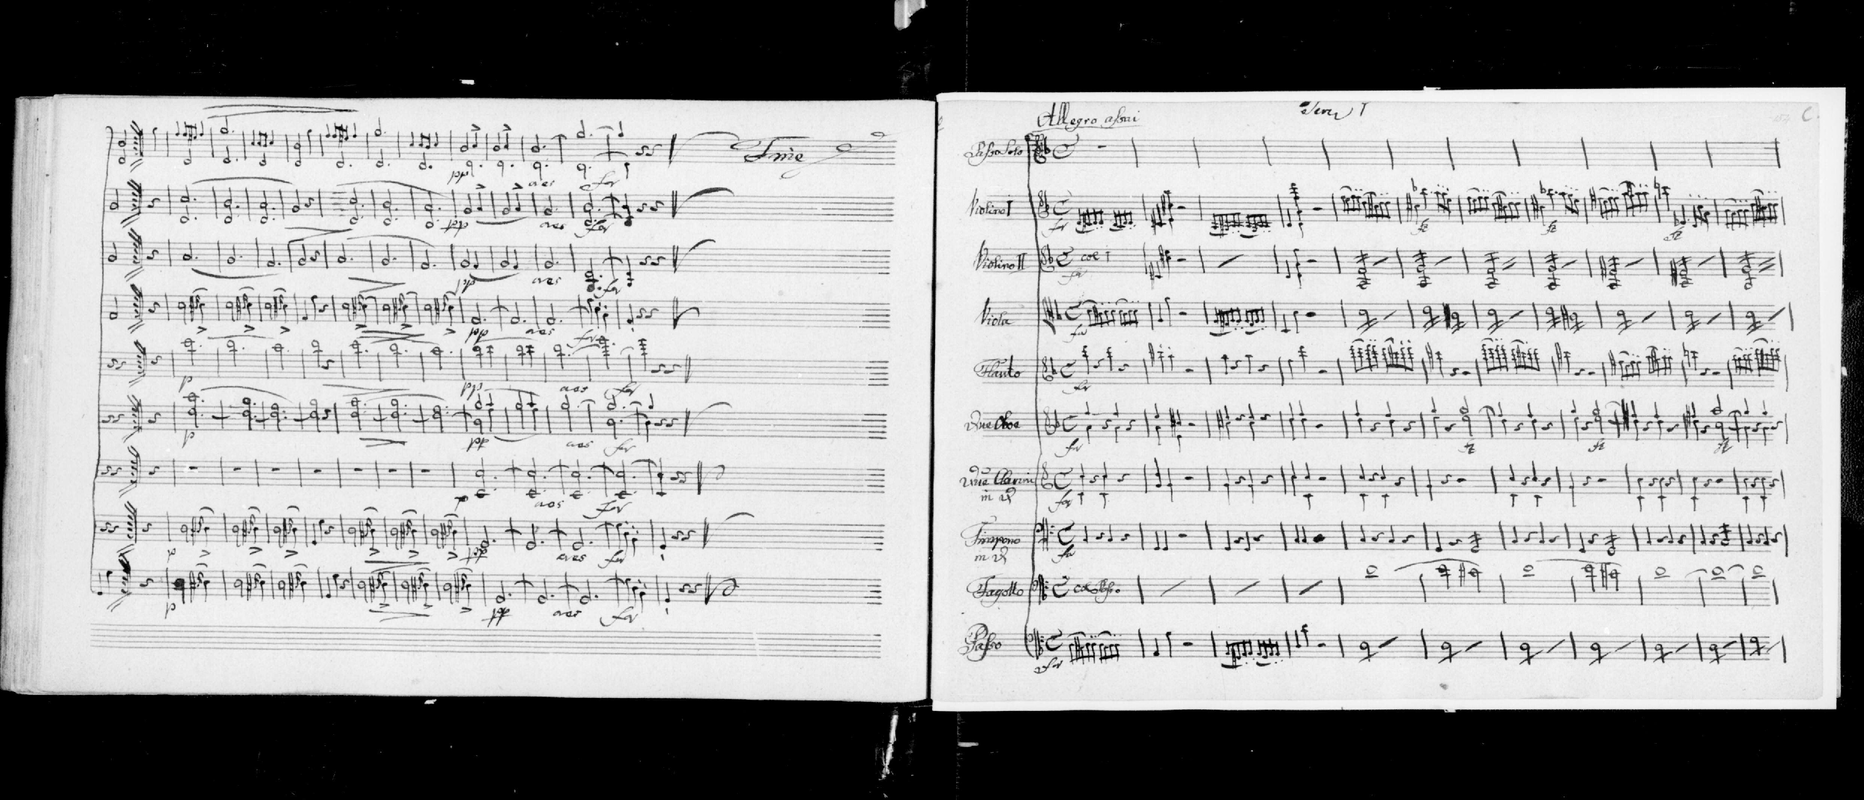 Fine
pp cres for
pp cres for
pp cres for
pp cres for
p pp cres for
p pp cres for
p cres for
p pp cres for
p pp cres for
Allegro assai
C.
Basso Solo
Violino I
for
Violino II
col I
for
Viola
for
Flauto
for
Due Oboe
for
Due Clarini
in D
for
Timpano
in D
for
Fagotto
col Basso
Basso
for